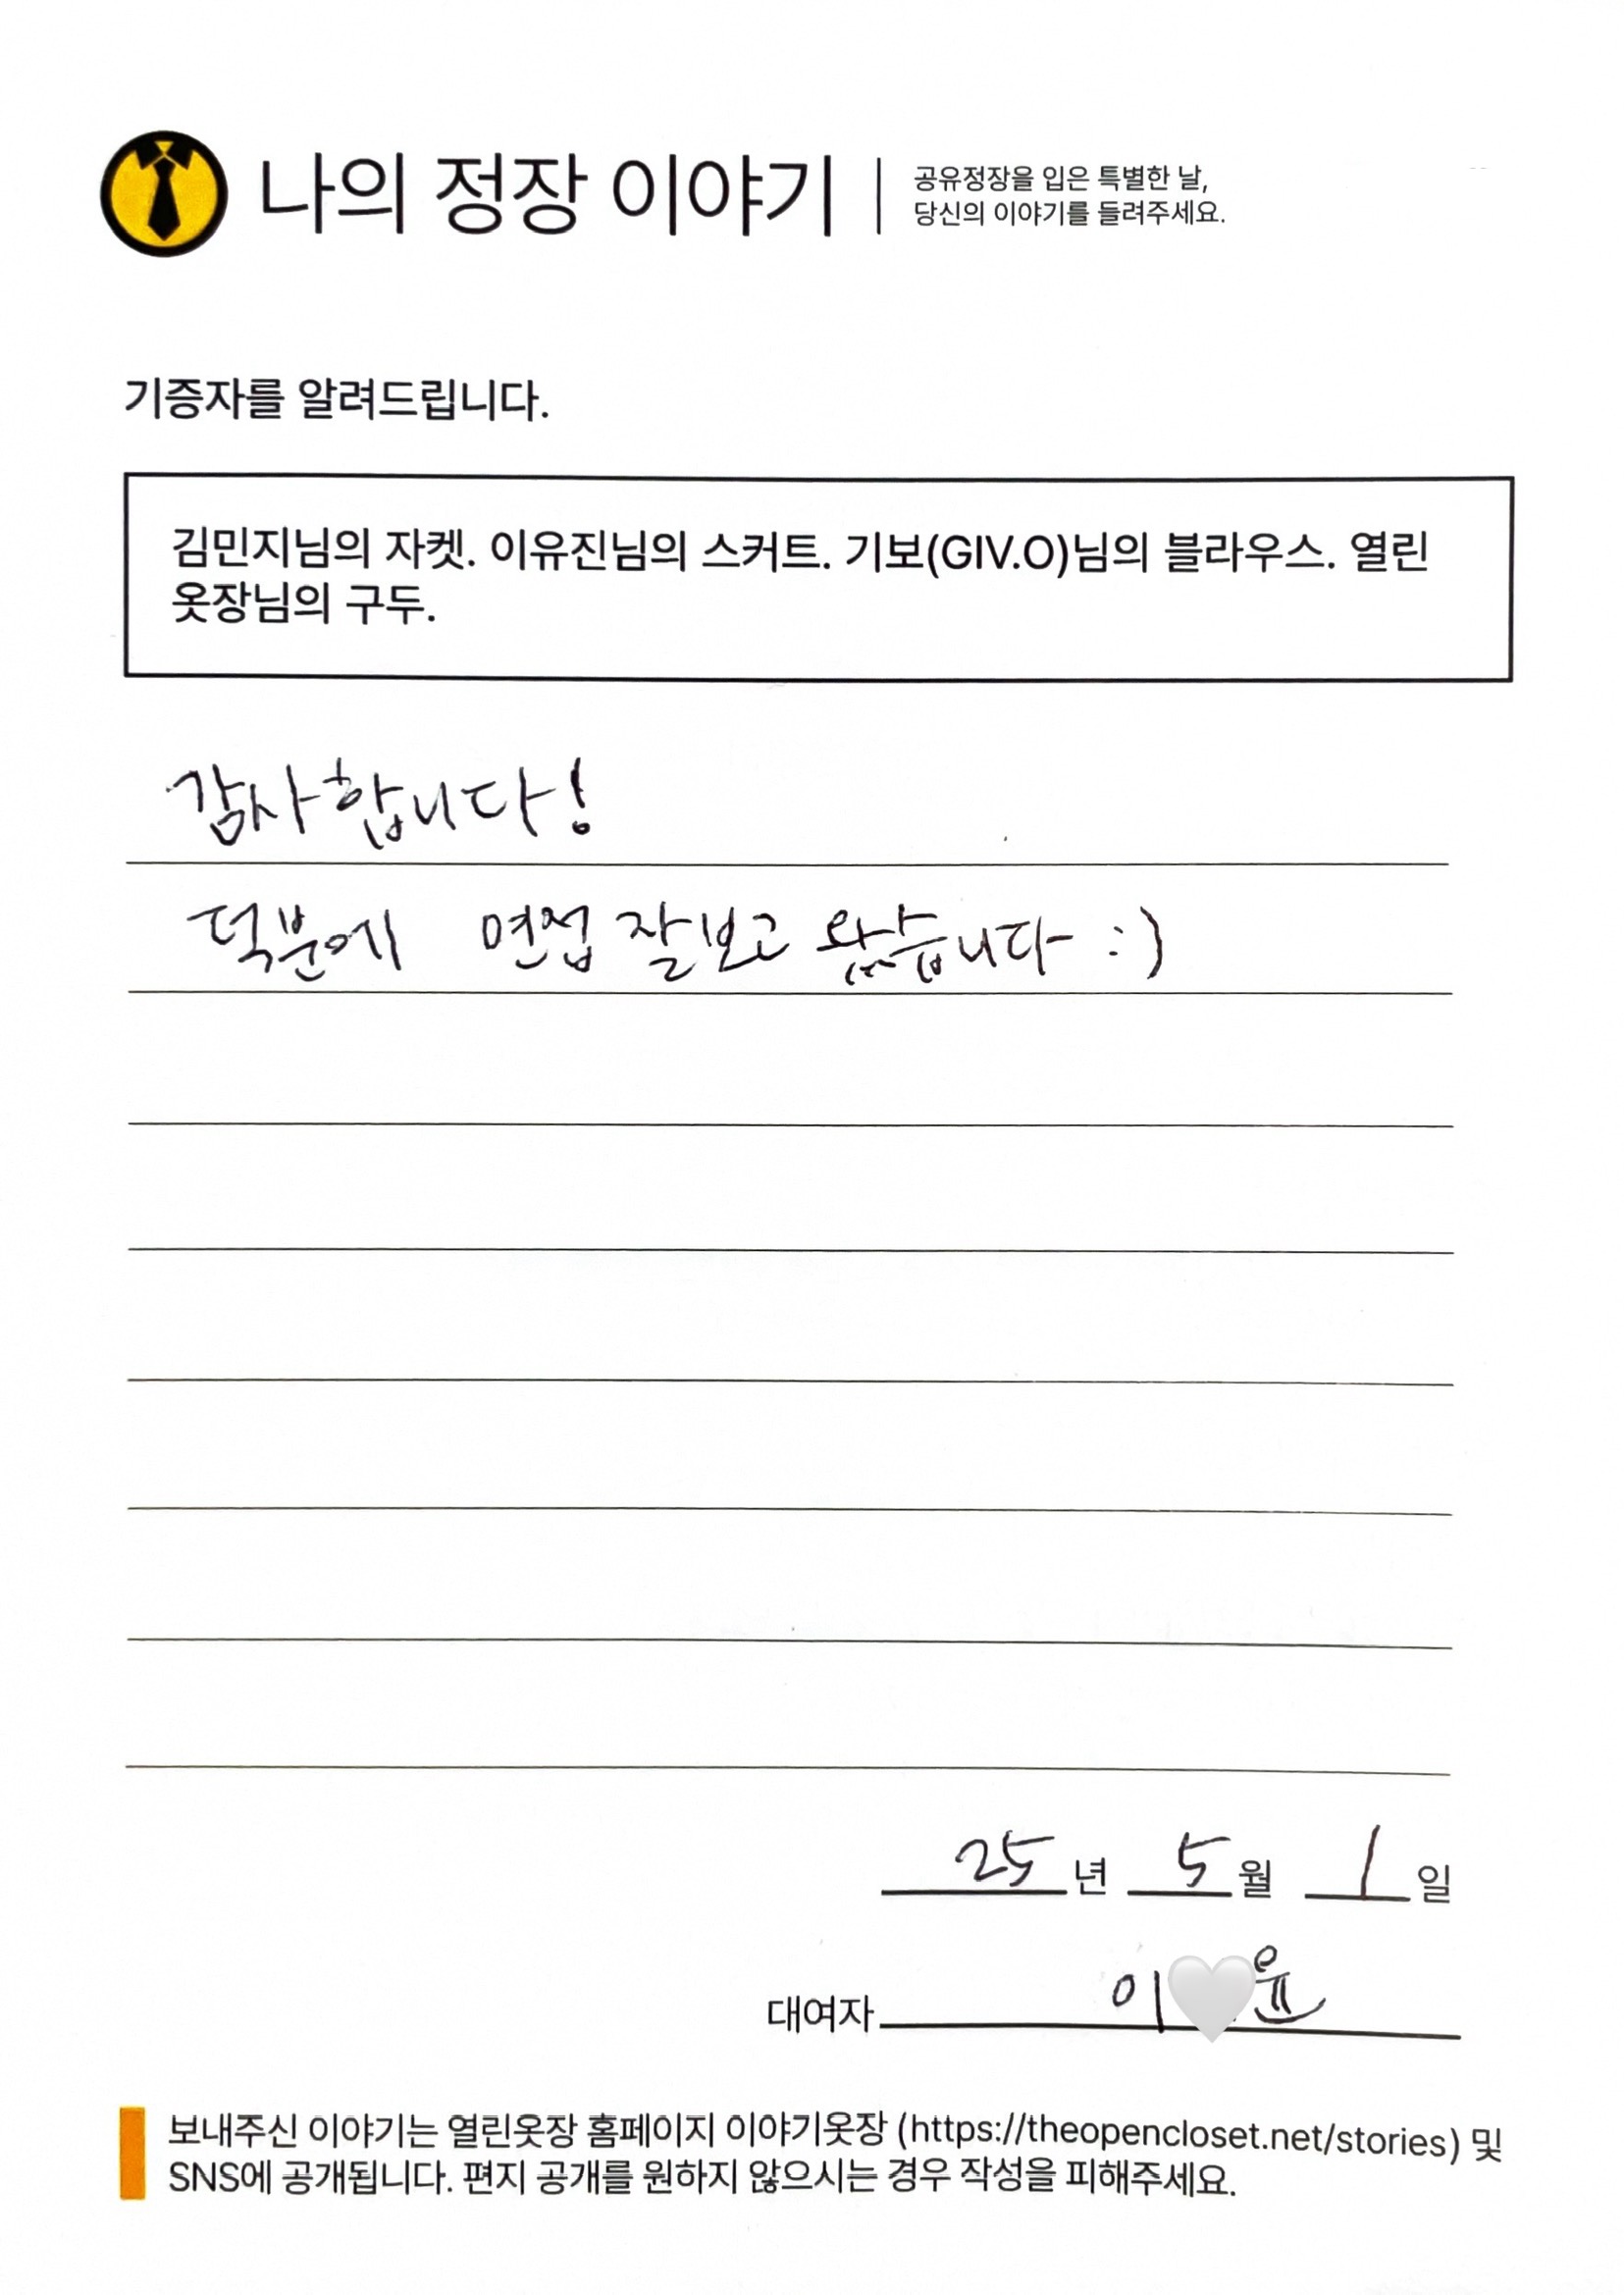 나의 정장 이야기
공유정장을 입은 특별한 날,
당신의 이야기를 들려주세요.
기증자를 알려드립니다.
김민지님의 자켓. 이유진님의 스커트. 기보(GIV.O)님의 블라우스. 열린
옷장님의 구두.
감사합니다!
덕분에 면접 잘보고 왔습니다 :)
25년 5월 1일
대여자 이🤍윤
보내주신 이야기는 열린옷장 홈페이지 이야기옷장 (https://theopencloset.net/stories) 및
SNS에 공개됩니다. 편지 공개를 원하지 않으시는 경우 작성을 피해주세요.